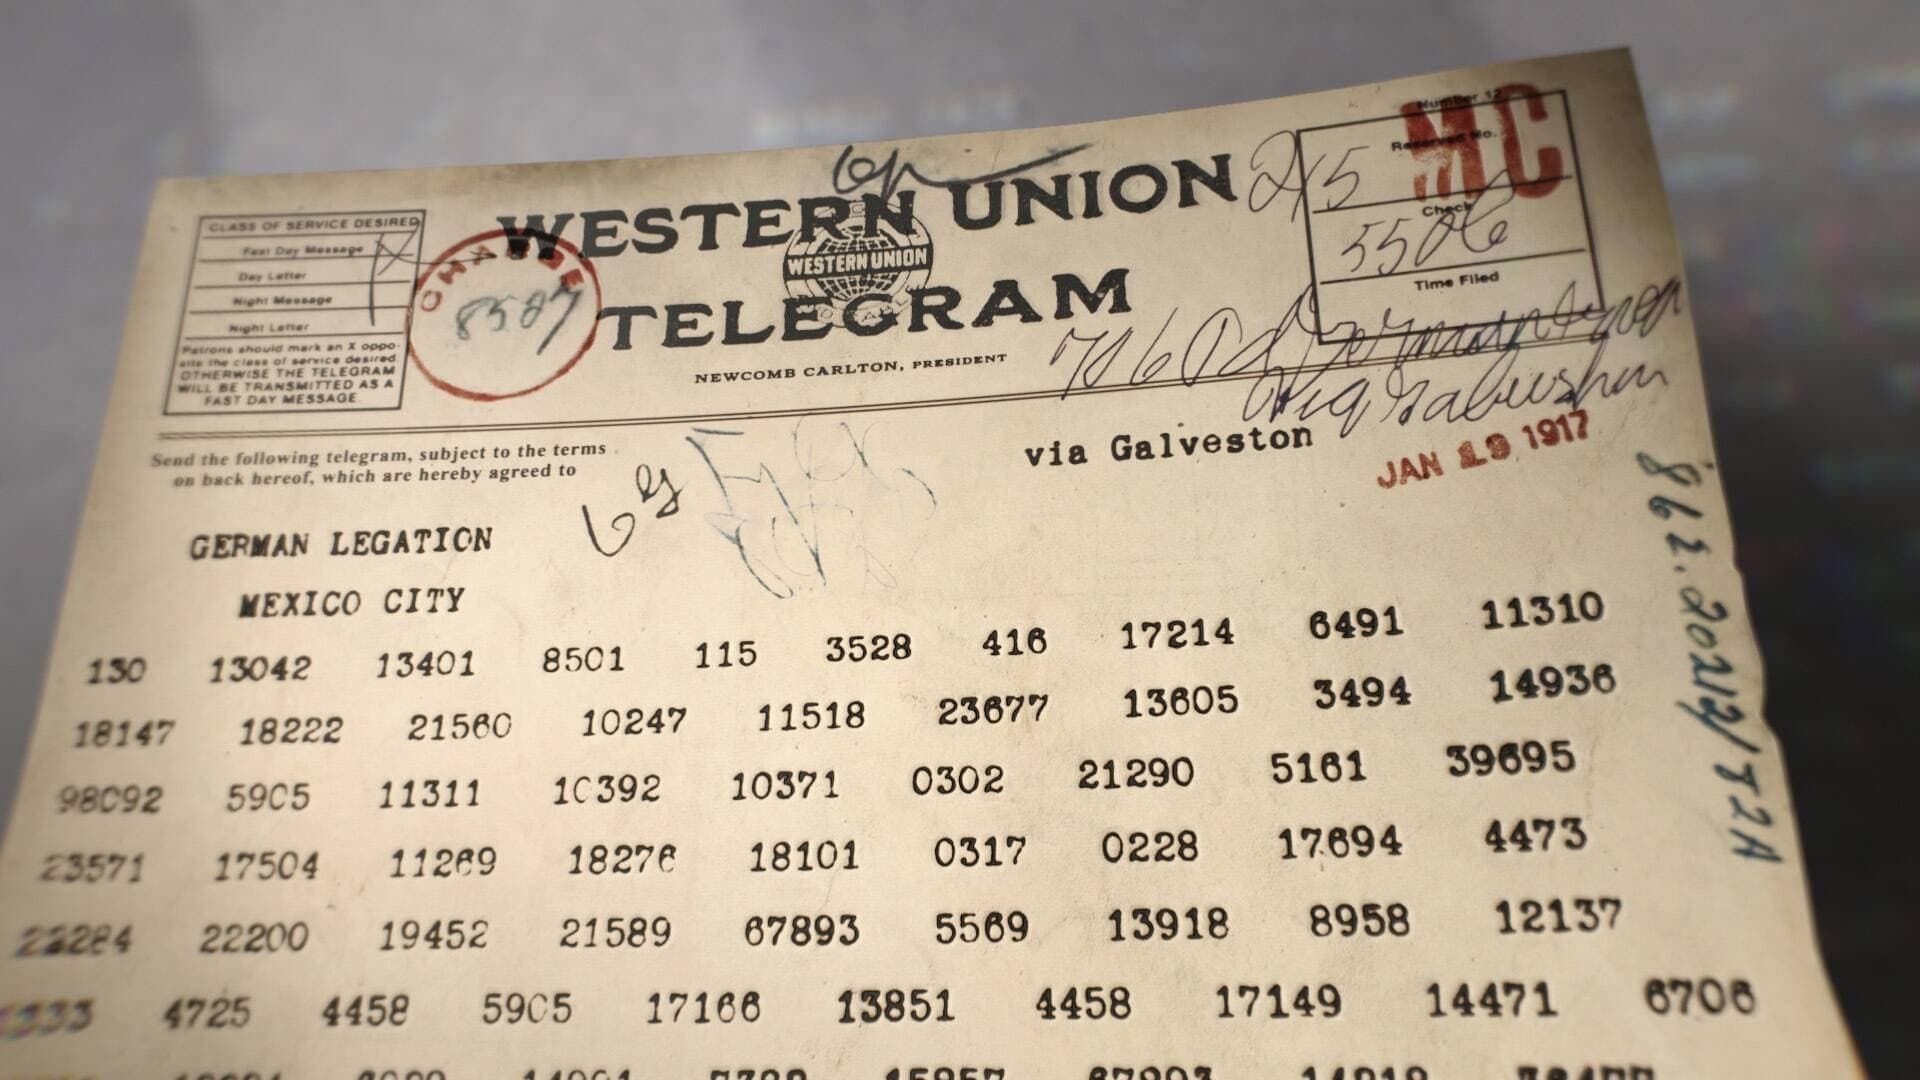 Number 12
MC
Received No.
215
Check
5506
Time Filed
CLASS OF SERVICE DESIRED
Fast Day Message
Day Letter
Night Message
Night Letter
Patrons should mark an X oppo-
site the class of service desired
OTHERWISE THE TELEGRAM
WILL BE TRANSMITTED AS A
FAST DAY MESSAGE.
CHARGE
8507
WESTERN UNION
WESTERN UNION
TELEGRAM
NEWCOMB CARLTON, PRESIDENT
Send the following telegram, subject to the terms
on back hereof, which are hereby agreed to
via Galveston
JAN 19 1917
GERMAN LEGATION
MEXICO CITY
130 13042 13401 8501 115 3528 416 17214 6491 11310
18147 18222 21560 10247 11518 23677 13605 3494 14936
98092 5905 11311 10392 10371 0302 21290 5161 39695
23571 17504 11269 18276 18101 0317 0228 17694 4473
22284 22200 19452 21589 67893 5569 13918 8958 12137
1333 4725 4458 5905 17166 13851 4458 17149 14471 6706
862.20212/82A